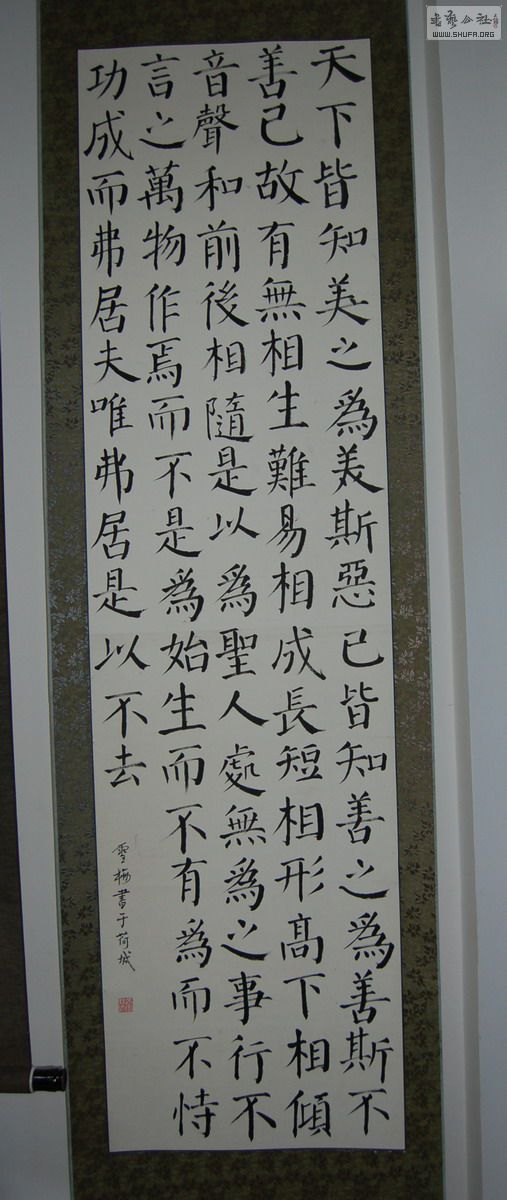 天下皆知美之為美斯惡已皆知善之為善斯不
善已故有無相生難易相成長短相形高下相傾
音聲和前後相隨是以為聖人處無為之事行不
言之萬物作焉而不是為始生而不有為而不恃
功成而弗居夫唯弗居是以不去
雪梅書于荷城
書藝公社
WWW.SHUFA.ORG